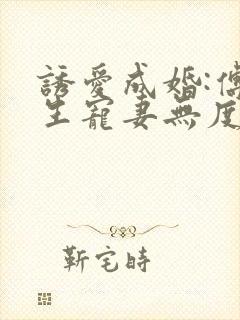 誘愛成婚:
生寵妻無度
靳宅時